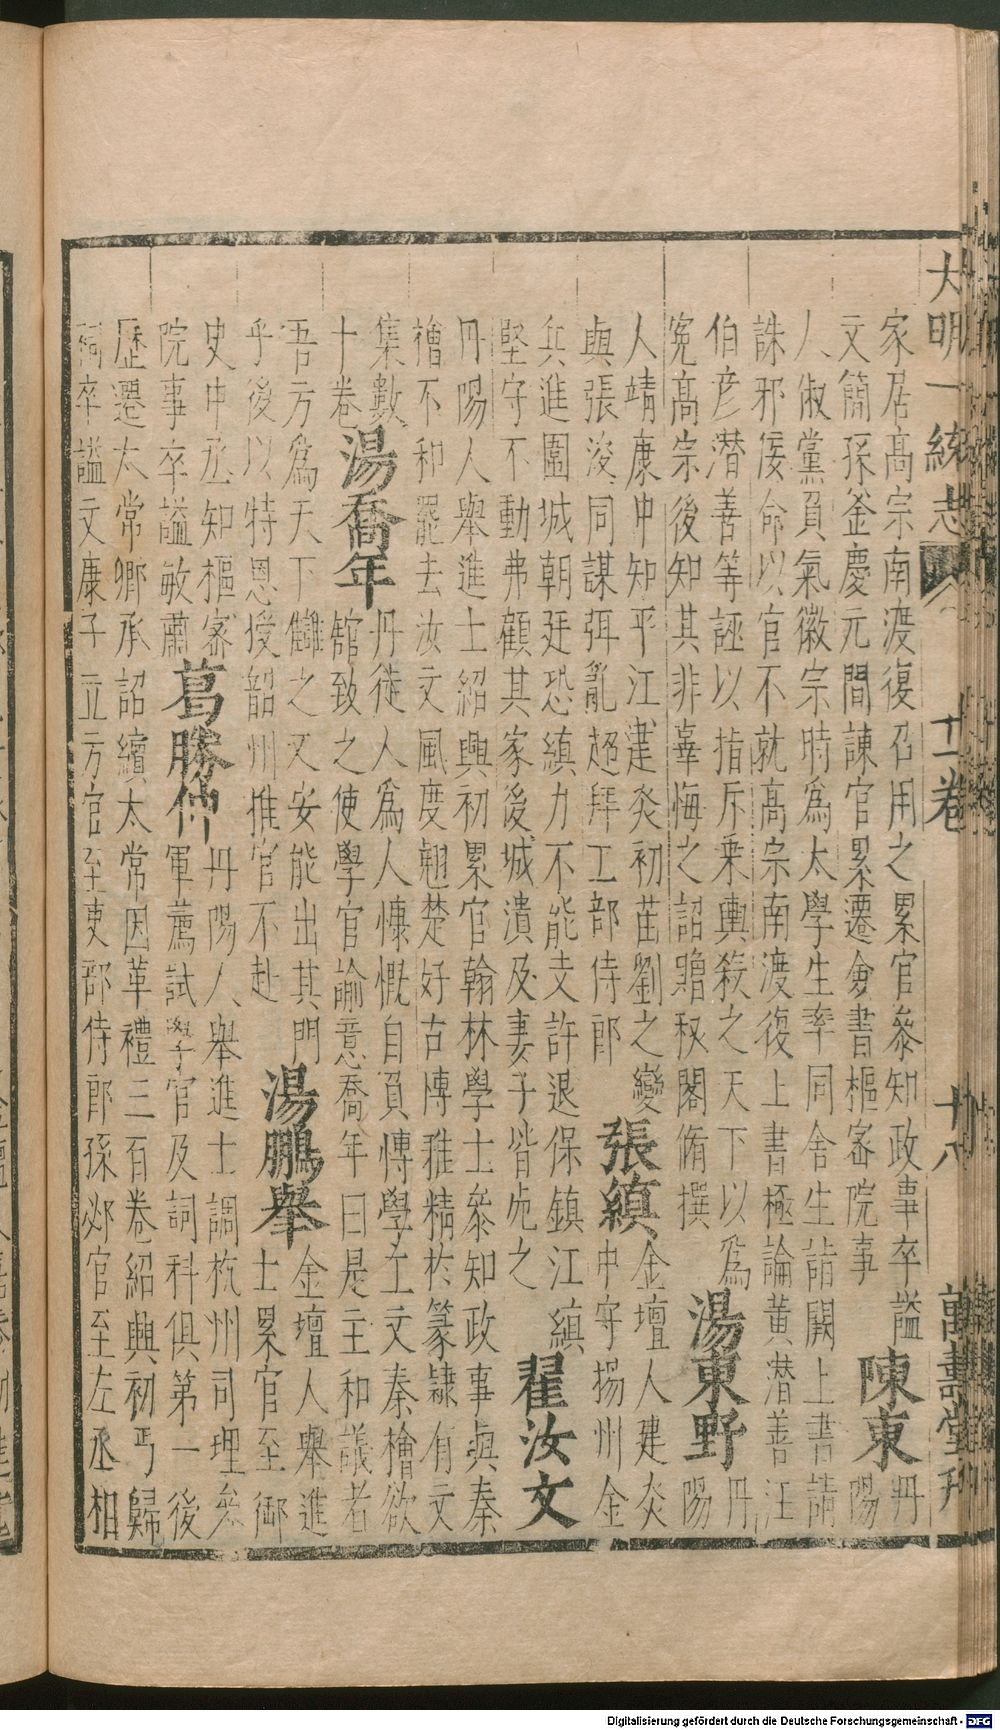 大明一統志 十一卷 十八 萬壽堂刊
家居高宗南渡復召用之累官參知政事卒謚
文簡孫釜慶元間諫官累遷僉書樞密院事
陳東
丹
陽
人俶黨負氣徽宗時為太學生率同舍生詣闕上書請
誅邪佞命以官不就高宗南渡復上書極論黃潛善汪
伯彥潛善等誣以指斥乘輿殺之天下以為
冤高宗後知其非辜悔之詔贈秘閣脩撰
湯東野
丹
陽
人靖康中知平江建炎初苗劉之變
與張浚同謀弭亂超拜工部侍郎
張縝
金壇人建炎
中守揚州金
兵進圍城朝廷恐縝力不能支許退保鎮江縝
堅守不動弗顧其家後城潰及妻子皆死之
翟汝文
丹陽人舉進士紹興初累官翰林學士參知政事與秦
檜不和罷去汝文風度翹楚好古博雅精於篆隸有文
集數
十卷
湯喬年
丹徒人為人慷慨自負博學工文秦檜欲
館致之使學官諭意喬年曰是主和議者
吾方為天下讎之又安能出其門
乎後以特恩授韶州推官不赴
湯鵬舉
金壇人舉進
士累官至御
史中丞知樞密
院事卒謚敏肅
葛勝仲
丹陽人舉進士調杭州司理參
軍薦試學官及詞科俱第一後
歷遷太常卿承詔續太常因革禮三百卷紹興初丐歸
祠卒謚文康子立方官至吏部侍郎孫邲官至左丞相
Digitalisierung gefördert durch die Deutsche Forschungsgemeinschaft - DFG